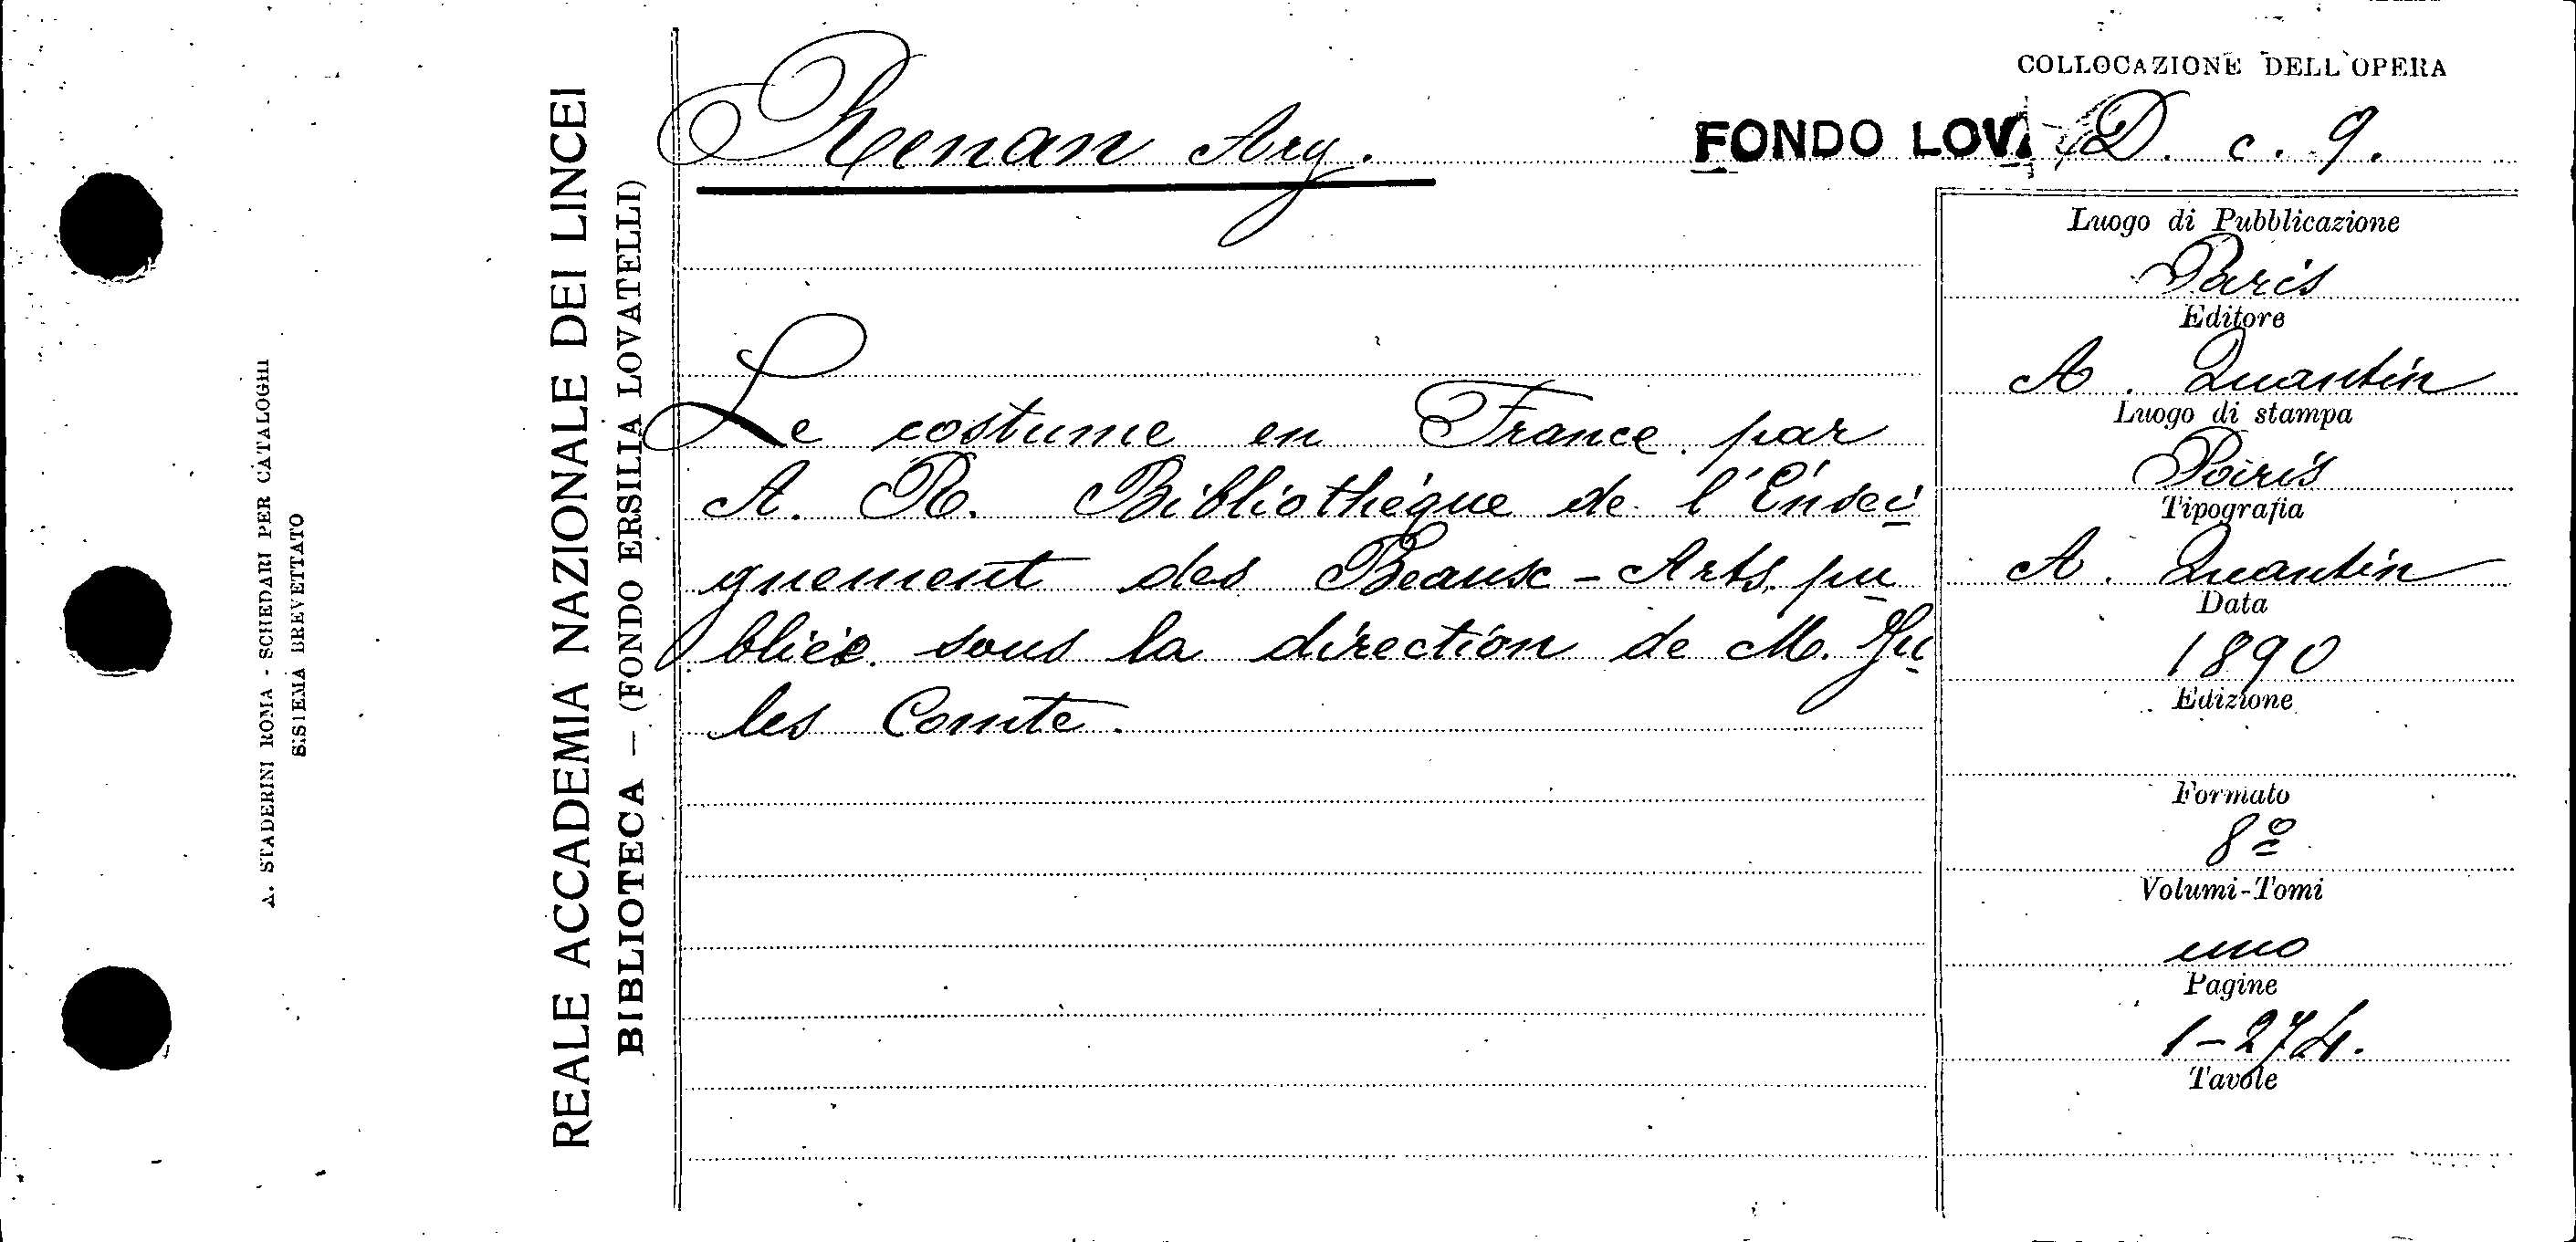 A. STADERINI ROMA - SCHEDARI PER CATALOGHI
SISTEMA BREVETTATO
REALE ACCADEMIA NAZIONALE DEI LINCEI
BIBLIOTECA — (FONDO ERSILIA LOVATELLI)
Renan Ary.
COLLOCAZIONE DELL'OPERA
FONDO LOV. D. c. 9.
Le costume en France par
A. R. Bibliothèque de l'Ensei
gnement des Beaux-Arts, pu
bliée sous la direction de M. Ju
les Comte.
Luogo di Pubblicazione
Paris
Editore
A. Quantin
Luogo di stampa
Paris
Tipografia
A. Quantin
Data
1890
Edizione
Formato
8º
Volumi-Tomi
uno
Pagine
1-274.
Tavole